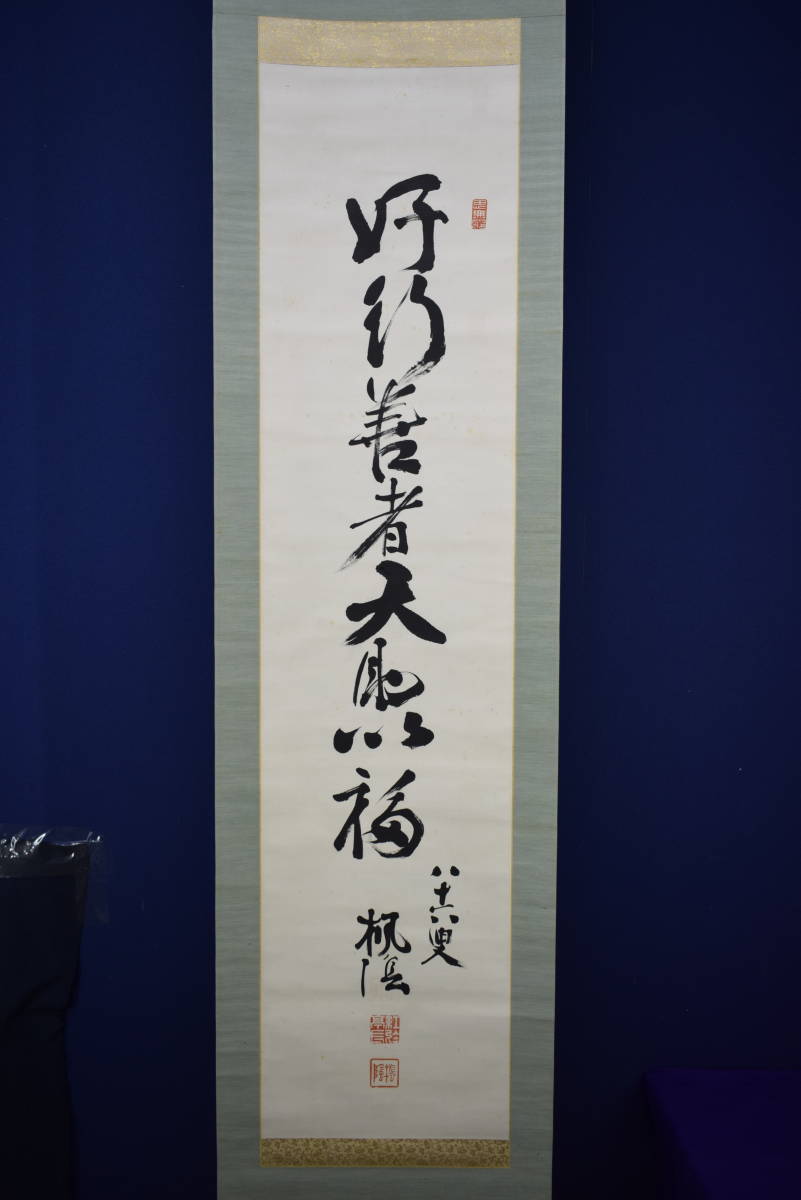 好行善者天助以福
八十六叟
楓陰